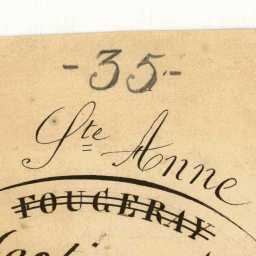 -35-
Ste Anne
FOUGERAY